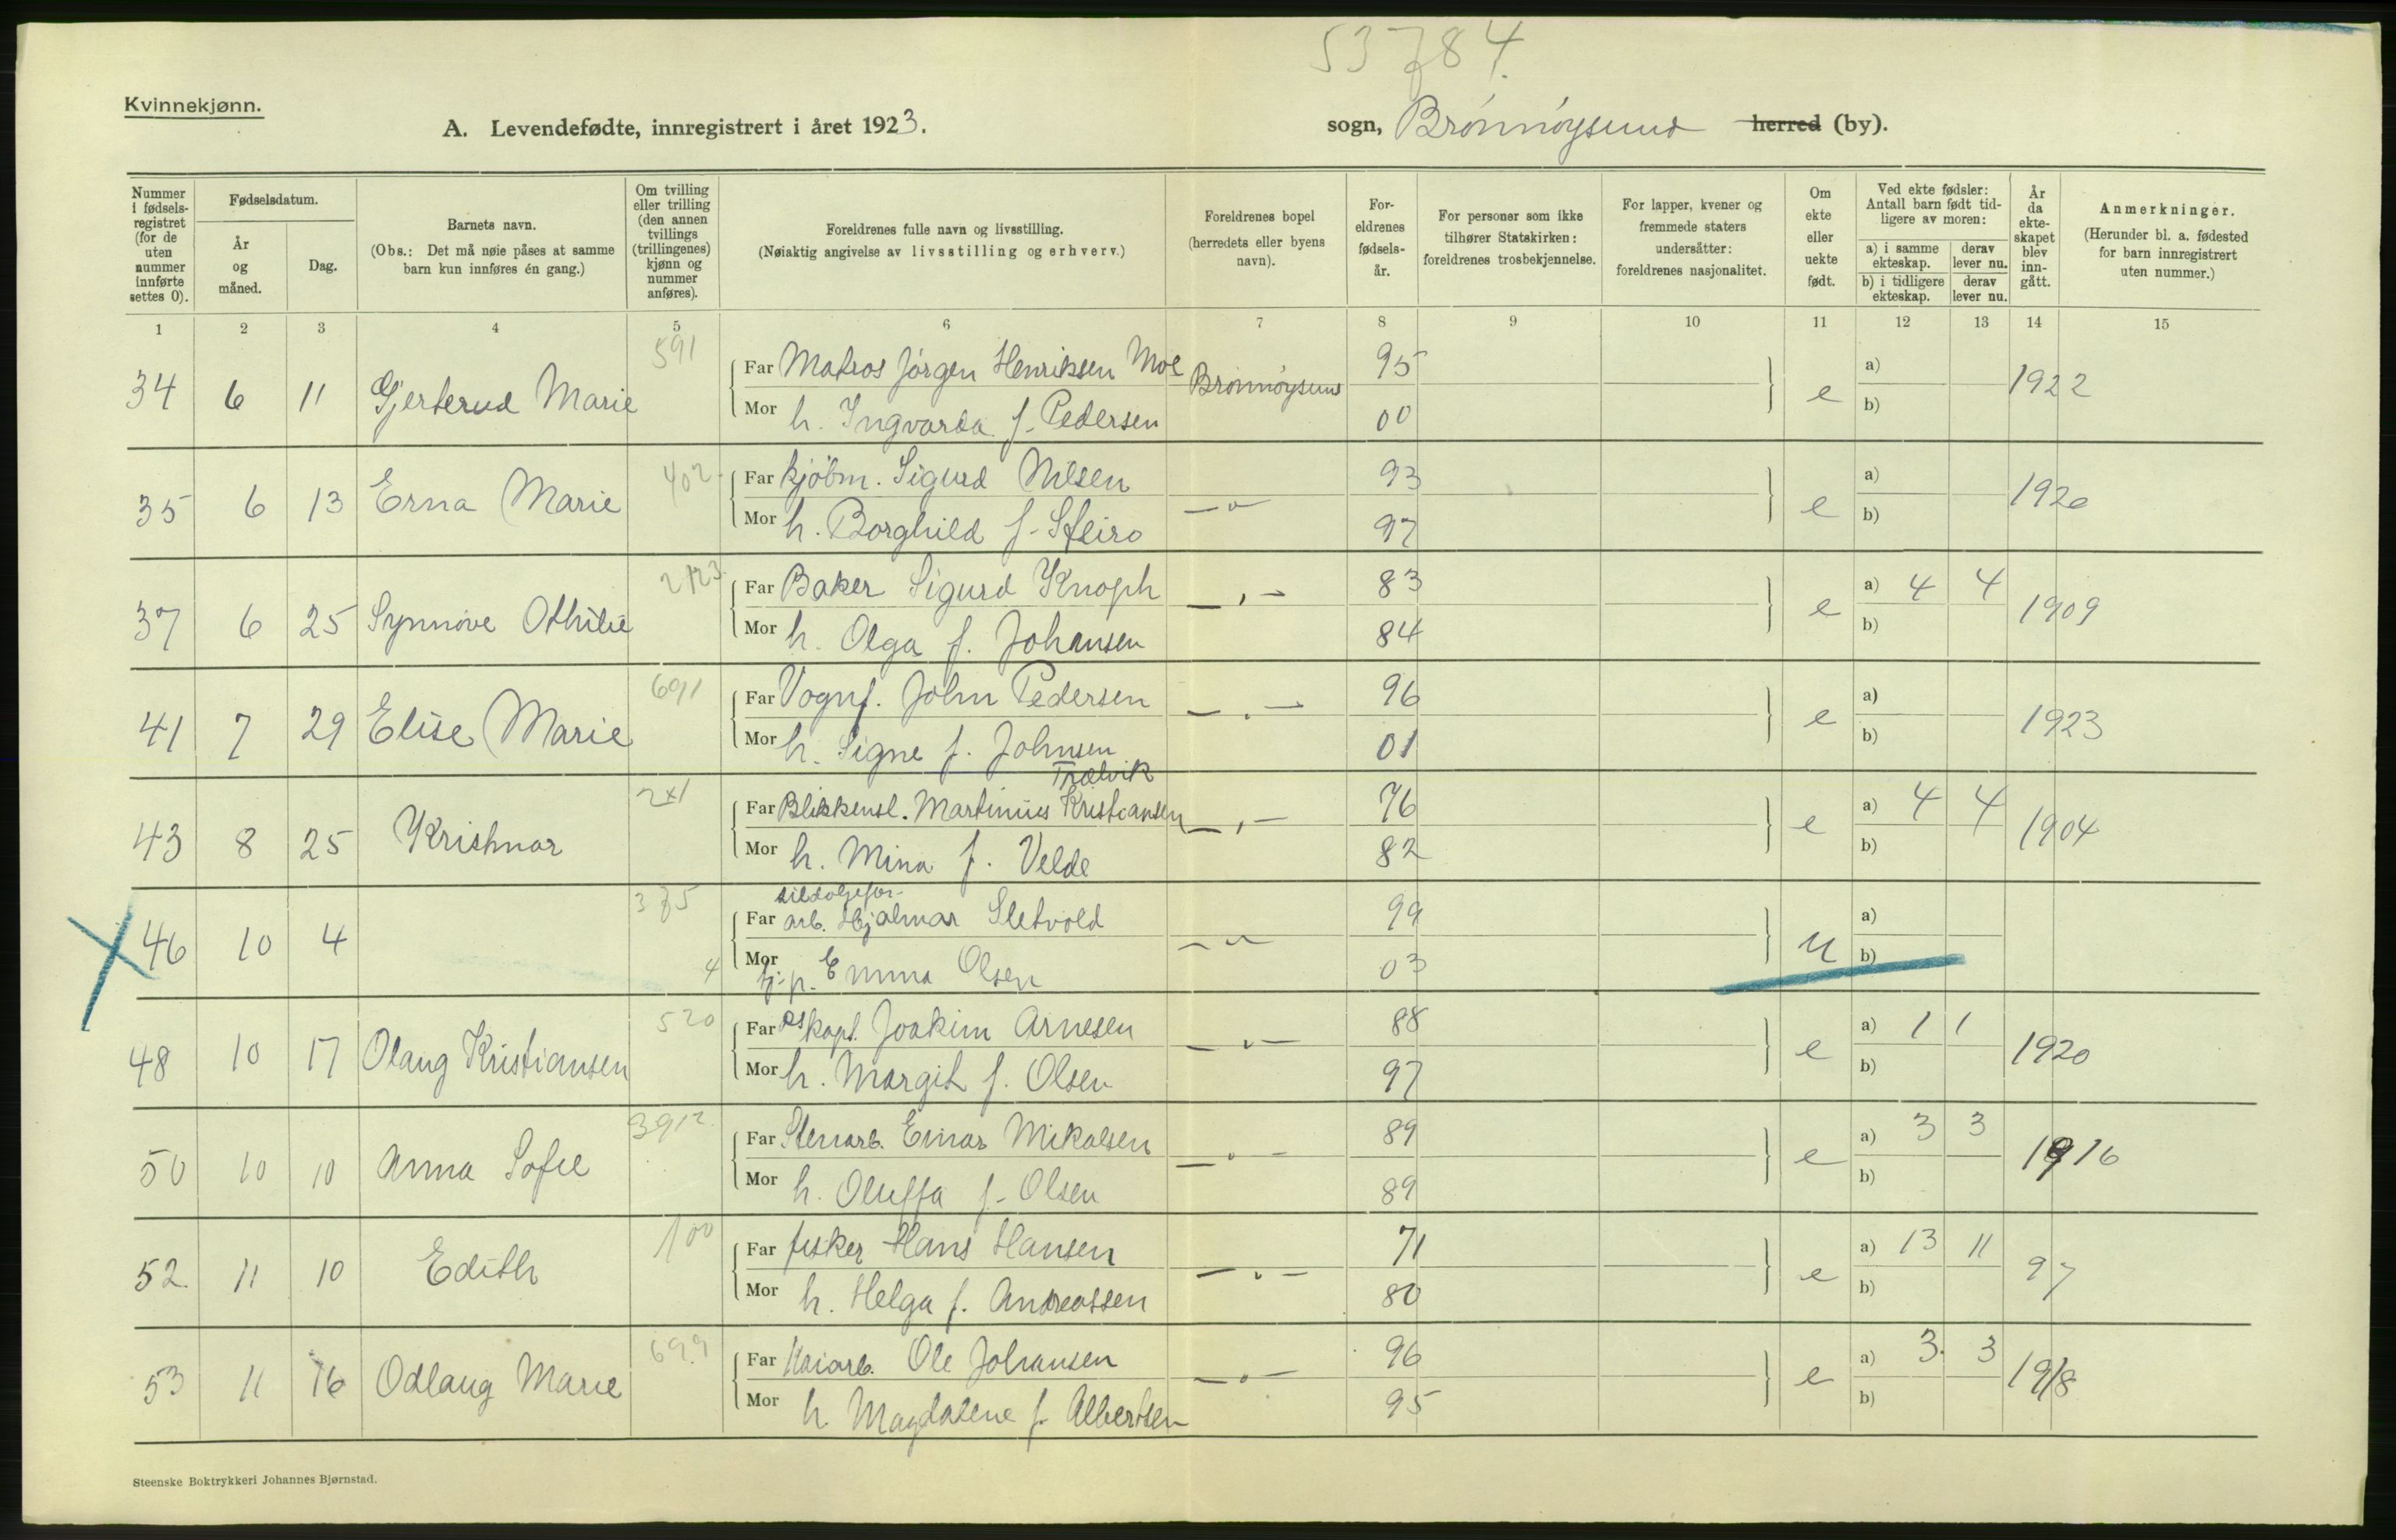 53784.
Kvinnekjønn.
A. Levendefødte, innregistrert i året 1923.
sogn, Brönnöysund herred (by).
Nummer i fødselsregistret (for de uten nummer innførte settes 0).
Fødselsdatum.
År og måned.
Dag.
Barnets navn.
(Obs.: Det må nøie påses at samme barn kun innføres én gang.)
Om tvilling eller trilling (den annen tvillings (trillingenes) kjønn og nummer anføres).
Foreldrenes fulle navn og livsstilling.
(Nøiaktig angivelse av livsstilling og erhverv.)
Foreldrenes bopel (herredets eller byens navn).
Foreldrenes fødselsår.
For personer som ikke tilhører Statskirken: foreldrenes trosbekjennelse.
For lapper, kvener og fremmede staters undersåtter: foreldrenes nasjonalitet.
Om ekte eller uekte født.
Ved ekte fødsler: Antall barn født tidligere av moren:
a) i samme ekteskap. derav lever nu.
b) i tidligere ekteskap. derav lever nu.
År da ekteskapet blev inngått.
Anmerkninger.
(Herunder bl. a. fødested for barn innregistrert uten nummer.)
1 2 3 4 5 6 7 8 9 10 11 12 13 14 15
591
34 6 11 Gjerterud Marie Far Matros Jörgen Henriksen Moe Brönnöysund 95 e a) 1922
Mor h. Ingvarda f. Pedersen 00 b)
402
35 6 13 Erna Marie Far kjöbm. Sigurd Nilsen — " — 93 e a) 1920
Mor h. Borghild f. Sfleiro 97 b)
37 6 25 Synnöve Othilie Far Baker Sigurd Knoph — " — 83 e a) 4 4 1909
Mor h. Olga f. Johansen 84 b)
691
41 7 29 Elise Marie Far Vognf. John Pedersen — " — 96 e a) 1923
Mor h. Signe f. Johnsen 01 b)
Trælvik
43 8 25 Kristnar Far Blikkensl. Martinius Kristiansen — " — 76 e a) 4 4 1904
Mor h. Mina f. Velde 82 b)
375
sildoljefor-
46 10 4 Far arb. Hjalmar Sletvold — " — 99 u a)
4 Mor tj.p. Emma Olsen 03 b)
520
48 10 17 Olaug Kristiansen Far Dskapt. Joakim Arnesen — " — 88 e a) 1 1 1920
Mor h. Margit f. Olsen 97 b)
3912
50 10 10 Anna Sofie Far Stenarb. Einar Mikalsen — " — 89 e a) 3 3 1916
Mor h. Oluffa f. Olsen 89 b)
100
52. 11 10 Edith Far fisker Hans Hansen — " — 71 e a) 13 11 97
Mor h. Helga f. Andreassen 80 b)
699
53 11 16 Odlaug Marie Far Kaiarb. Ole Johansen — " — 96 e a) 3. 3 1918
Mor h. Magdalene f. Albertsen 95 b)
Steenske Boktrykkeri Johannes Bjørnstad.